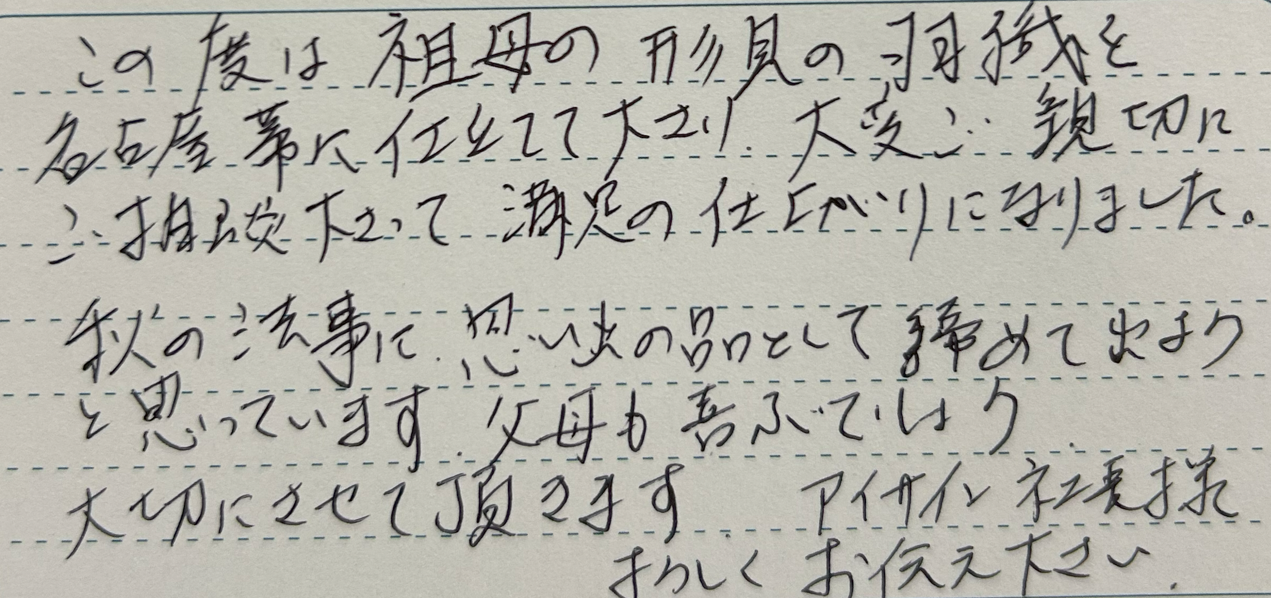 この度は祖母の形見の羽織を
名古屋帯に仕立てて下さり 大変ご親切に
ご相談下さって 満足の仕上がりになりました。
秋の法事に 思い出の品として締めて出よう
と思っています 父母も喜ぶでしょう
大切にさせて頂きます アイサイン社長様
よろしくお伝え下さい.